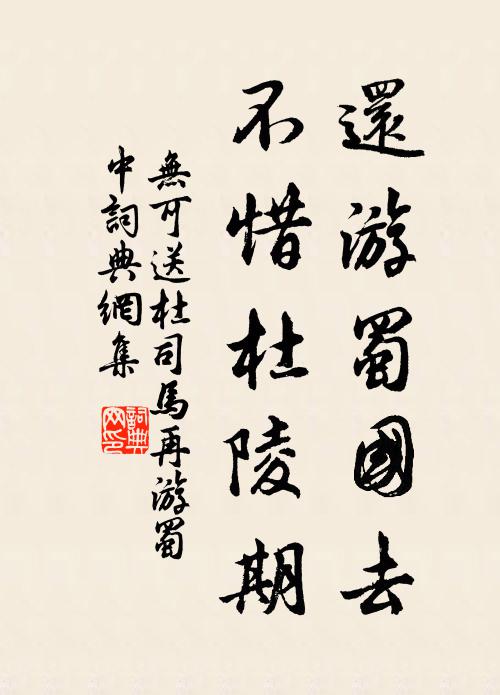 還游蜀國去
不惜杜陵期
無可送杜司馬再游蜀
中詞典網集
詞典
网印